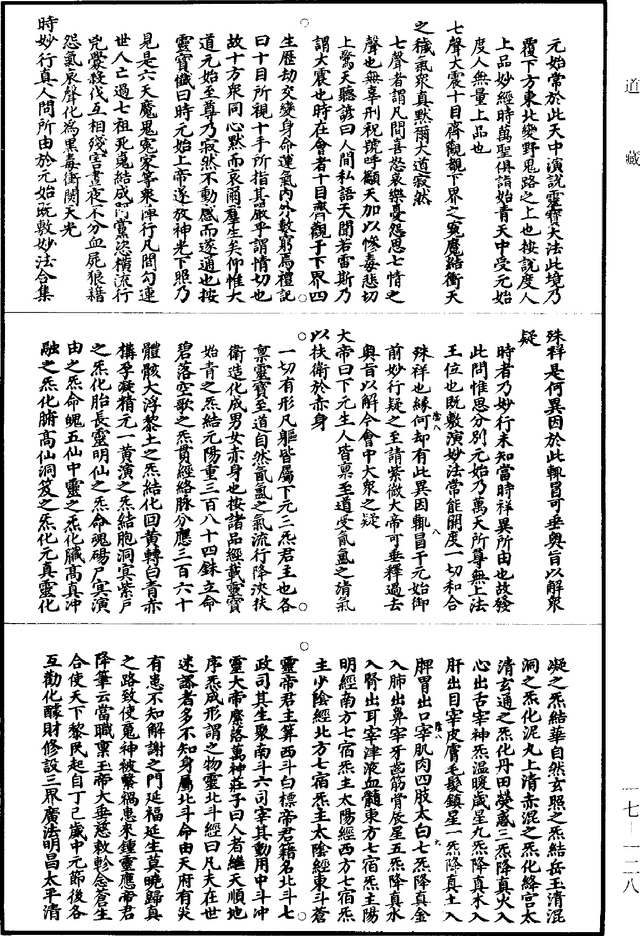 道藏
元始常於此天中演說靈寶大法此境乃
覆下方東北變野鬼路之上也按說度人
上品妙經時萬聖俱詣始青天中受元始
度人無量上品也
七聲大震十目齊觀觀下界之冤魔結衝天
之穢氣衆真默爾大道寂然
七聲者謂凡間喜怒哀樂憂怨思七情之
聲也無辜刑祝號呼顧天加以慘毒悲切
上驚天聽諺曰人間私語天聞若雷斯乃
謂大震也時在會者十目齊觀于下界四
生歷劫交變身命運氣內外數窮焉禮記
曰十目所視十手所指其嚴乎謂情切也
故十方衆同心默而哀爾羣生矣仰惟大
道元始至尊乃寂然不動感而遂通也按
靈寶懺曰時元始上帝遂放神光下照乃
見是六天魔鬼冤家等衆陣行凡間勾連
世人亡過七祖死魂結成橫流行
兇釁殺伐互相殘害晝夜不分血屍狼籍
怨氣哀聲化爲黑毒衝閡天光
時妙行真人問所由於元始旣敷妙法合集
殊祥是何異因於此輒昌可垂奧旨以解衆
疑
時者乃妙行未知當時祥異所由也故發
此問惟思分別元始乃萬天所尊無上法
王位也旣敷演妙法常能開度一切和合
殊祥也緣何却有此異因輒昌干元始御
前妙行疑之至請紫微大帝可垂釋過去
奧旨以解今會中大衆之疑
大帝曰下元生人皆禀至道受氤氳之清氣
以扶衛於赤身
一切有形凡軀皆屬下元三炁君主也各
禀靈寶至道自然氤氳之氣流行降浹扶
衛造化成男女赤身也按諸品經載靈寶
始青之炁結元陽重三百八十四銖立命
碧落空歌之炁貫經絡脉分應三百六十
體骸大浮黎土之炁結化回黃轉白青赤
構孚凝精元一黃演之炁結胞洞冥紫戶
之炁化胎長靈明仙之炁命魂碭尸冥演
由之炁命魄五仙中靈之炁化臟高真冲
融之炁化腑高仙洞笈之炁化元真靈化
凝之炁結華自然玄照之炁結岳玉清混
洞之炁化泥丸上清赤混之炁化絳宮太
清玄通之炁化丹田熒惑三炁降真火入
心出舌宰神炁溫暖歲星九炁降真木入
肝出目宰皮膚毛髮鎮星一炁降真土入
脾胃出口宰肌肉四肢太白七炁降真金
入肺出鼻宰牙齒筋骨辰星五炁降真水
入腎出耳宰津液血髓東方七宿炁主陽
明經南方七宿炁主太陽經西方七宿炁
主少陰經北方七宿炁主太陰經東斗蒼
靈帝君主算西斗白標帝君籍名北斗七
政司其生聚南斗六司宰其動用中斗冲
靈大帝麾落萬神莊子曰人者繼天順地
序炁成形謂之物靈北斗經曰凡夫在世
迷謬者多不知身屬北斗命由天府有災
有患不知解謝之門延福延生莫曉歸真
之路致使魂神被繫禍患來鍾靈應帝君
降筆云當職禀玉帝大垂慈敕軫念蒼生
合使天下黎民起自丁巳歲中元節後各
互勸化醵財修設三界廣法明昌太平清
一七—一二八